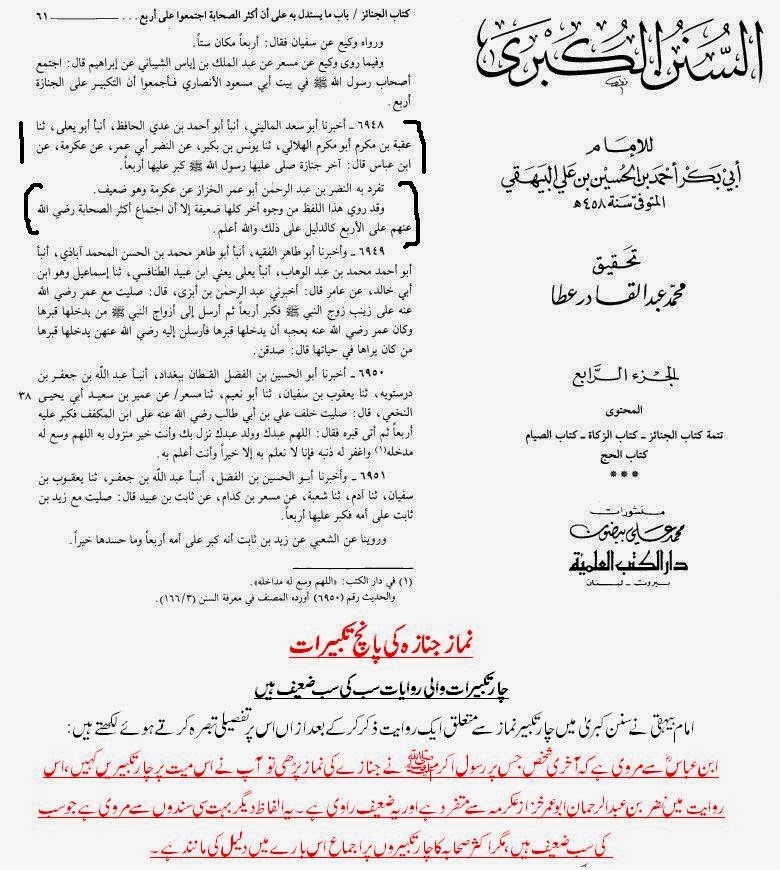 كتاب الجنائز / باب ما يستدل به على أن أكثر الصحابة اجتمعوا على أربع . . . ٦١
ورواه وكيع عن سفيان فقال: أربعاً مكان ستاً.
وفيما روى وكيع عن مسعر عن عبد الملك بن إياس الشيباني عن إبراهيم قال: اجتمع
أصحاب رسول الله ﷺ في بيت أبي مسعود الأنصاري فأجمعوا أن التكبير على الجنازة
أربع.
٦٩٤٨ ـ أخبرنا أبو سعد الماليني، أنبأ أبو أحمد بن عدي الحافظ، أنبأ أبو يعلى، ثنا
عقبة بن مكرم أبو مكرم الهلالي، ثنا يونس بن بكير، عن النضر أبي عمر، عن عكرمة، عن
ابن عباس قال: آخر جنازة صلى عليها رسول الله ﷺ كبر عليها أربعاً.
تفرد به النضر بن عبد الرحمٰن أبو عمر الخزاز عن عكرمة وهو ضعيف.
وقد روي هذا اللفظ من وجوه أخر كلها ضعيفة إلا أن اجتماع أكثر الصحابة رضي الله
عنهم على الأربع كالدليل على ذلك والله أعلم.
٦٩٤٩ ـ وأخبرنا أبو طاهر الفقيه، أنبأ أبو طاهر محمد بن الحسن المحمد آباذي، أنبأ
أبو أحمد محمد بن عبد الوهاب، أنبأ يعلى يعني ابن عبيد الطنافسي، ثنا إسماعيل وهو ابن
أبي خالد، عن عامر قال: أخبرني عبد الرحمٰن بن أبزى، قال: صليت مع عمر رضي الله
عنه على زينب زوج النبي ﷺ فكبر أربعاً ثم أرسل إلى أزواج النبي ﷺ من يدخلها قبرها
وكان عمر رضي الله عنه يعجبه أن يدخلها قبرها فأرسلن إليه رضي الله عنهن يدخلها قبرها
من كان يراها في حياتها قال: صدقن.
٦٩٥٠ ـ أخبرنا أبو الحسين بن الفضل القطان ببغداد، أنبأ عبد الله بن جعفر بن
درستويه، ثنا يعقوب بن سفيان، ثنا أبو نعيم، ثنا مسعر/ عن عمير بن سعيد أبي يحيى ٣٨
النخعي، قال: صليت خلف علي بن أبي طالب رضي الله عنه على ابن المكفف فكبر عليه
أربعاً ثم أتى قبره فقال: اللهم عبدك وولد عبدك نزل بك وأنت خير منزول به اللهم وسع له
مدخله(١) واغفر له ذنبه فإنا لا نعلم به إلا خيراً وأنت أعلم به.
٦٩٥١ ـ وأخبرنا أبو الحسين بن الفضل، أنبأ عبد الله بن جعفر، ثنا يعقوب بن
سفيان، ثنا آدم، ثنا شعبة، عن مسعر بن كدام، عن ثابت بن عبيد قال: صليت مع زيد بن
ثابت على أمه فكبر عليها أربعاً.
وروينا عن الشعبي عن زيد بن ثابت أنه كبر على أمه أربعاً وما حسدها خيراً.
(١) في دار الكتب: «اللهم وسع له مداخله».
والحديث رقم (٦٩٥٠) أورده المصنف في معرفة السنن (١٦٦/٣).
السنن الكبرى
للإمام
أبي بكر أحمد بن الحسين بن علي البيهقي
المتوفى سنة ٤٥٨ هـ
تحقيق
محمد عبد القادر عطا
الجزء الرابع
المحتوى
تتمة كتاب الجنائز ـ كتاب الزكاة ـ كتاب الصيام
كتاب الحج
***
منشورات
محمد علي بيضون
دار الكتب العلمية
بيروت ـ لبنان
نماز جنازہ کی پانچ تکبیرات
چار تکبیرات والی روایات سب کی سب ضعیف ہیں
امام بیہقی نے سنن کبریٰ میں چار تکبیر نماز سے متعلق ایک روایت ذکر کرکے بعد ازاں اس پر تفصیلی تبصرہ کرتے ہوئے لکھتے ہیں:
ابن عباسؓ سے مروی ہے کہ آخری شخص جس پر رسول اکرم ﷺ نے جنازے کی نماز پڑھی تو آپ نے اس میت پر چار تکبیریں کہیں، اس
روایت میں نضر بن عبد الرحمان ابو عمر خزاز عکرمہ سے متفرد ہے اور یہ ضعیف راوی ہے۔ یہ الفاظ دیگر بہت سی سندوں سے مروی ہے جو سب
کی سب ضعیف ہیں، مگر اکثر صحابہ کا چار تکبیروں پر اجماع اس بارے میں دلیل کی مانند ہے۔